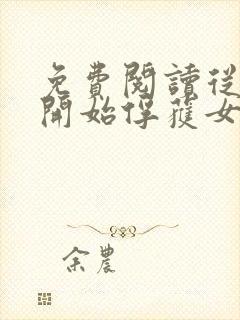 免費閱讀從
開始俘獲女
余農